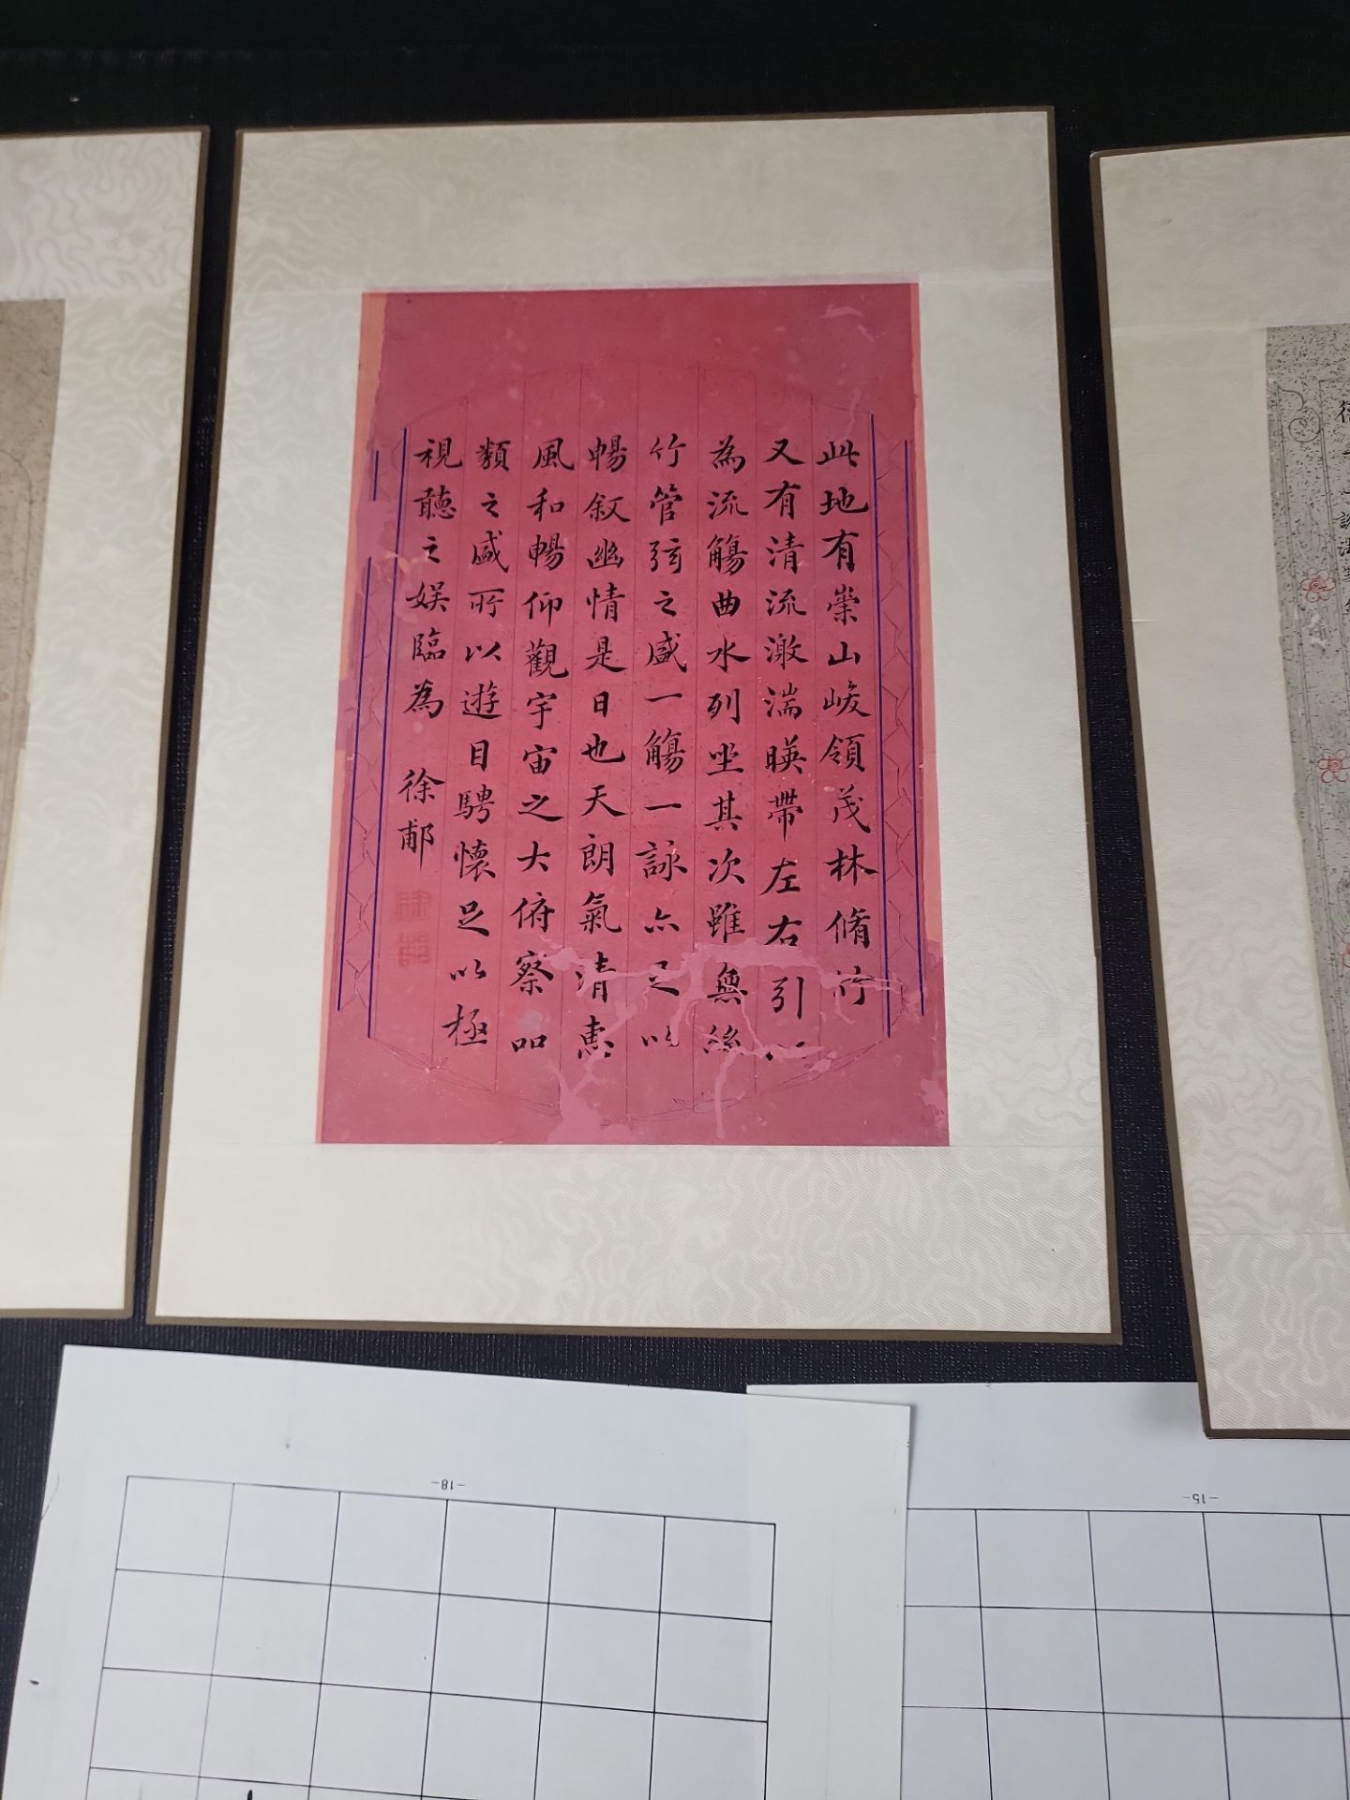 此地有崇山峻領茂林脩竹
又有清流激湍暎帶左右引以
為流觴曲水列坐其次雖無絲
竹管弦之盛一觴一詠亦足以
暢叙幽情是日也天朗氣清惠
風和暢仰觀宇宙之大俯察品
類之盛所以遊目騁懷足以極
視聽之娱臨為 徐郙
-18-
-15-